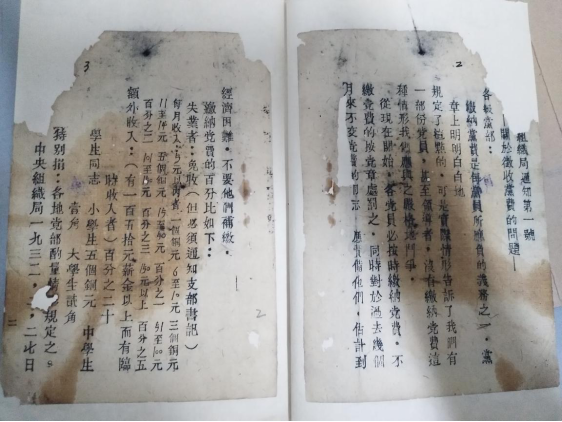 2
組織局通知第一號
——關於徵收黨費的問題——
各級黨部：
繳納黨費是每黨員所應負的義務之一，黨
章上明明白白地
規定了的，可是實際情形告訴了我們有
一部份党員，甚至領導者，沒有繳納党費這
種情形我們應與之嚴格的鬥爭。
從現在開始，各党員必按時繳納党費，不
繳党費的按党章處罰之，同時對於過去幾個
月來不交党費的同志，應責備他們，估計到
3
經濟困難，不要他們補繳。
繳納党費的百分比如下：
失業者：免收（但必須通知支部書記）
每月收入：5元以下者 一個銅元 6至10元 三個銅元
11至14元 五個銅元 15至30元 百分之一 31至100元
百分之二 百分之三 150元以上 百分之五
額外收入：（有一百五十元薪金以上而有臨
時收入者）百分之二十
學生同志 小學生五個銅元 中學生
壹角 大學生貳角
特別捐：各地党部酌量情形規定之。
中央組織局一九三二、二、廿七日
1
2
二